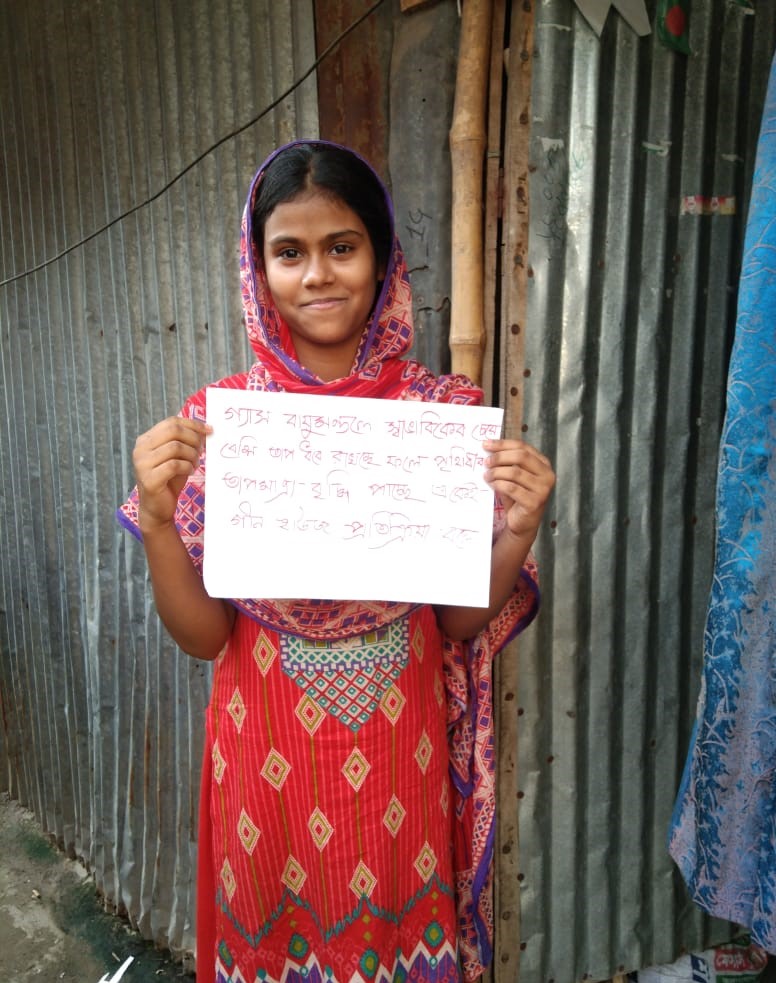 গ্যাস বায়ুমন্ডলে স্বাভাবিকের চেয়ে
বেশি তাপ ধরে রাখছে ফলে পৃথিবীর
তাপমাত্রা বৃদ্ধি পাচ্ছে একেই-
গ্রীন হাউজ প্রতিক্রিয়া বলে
14